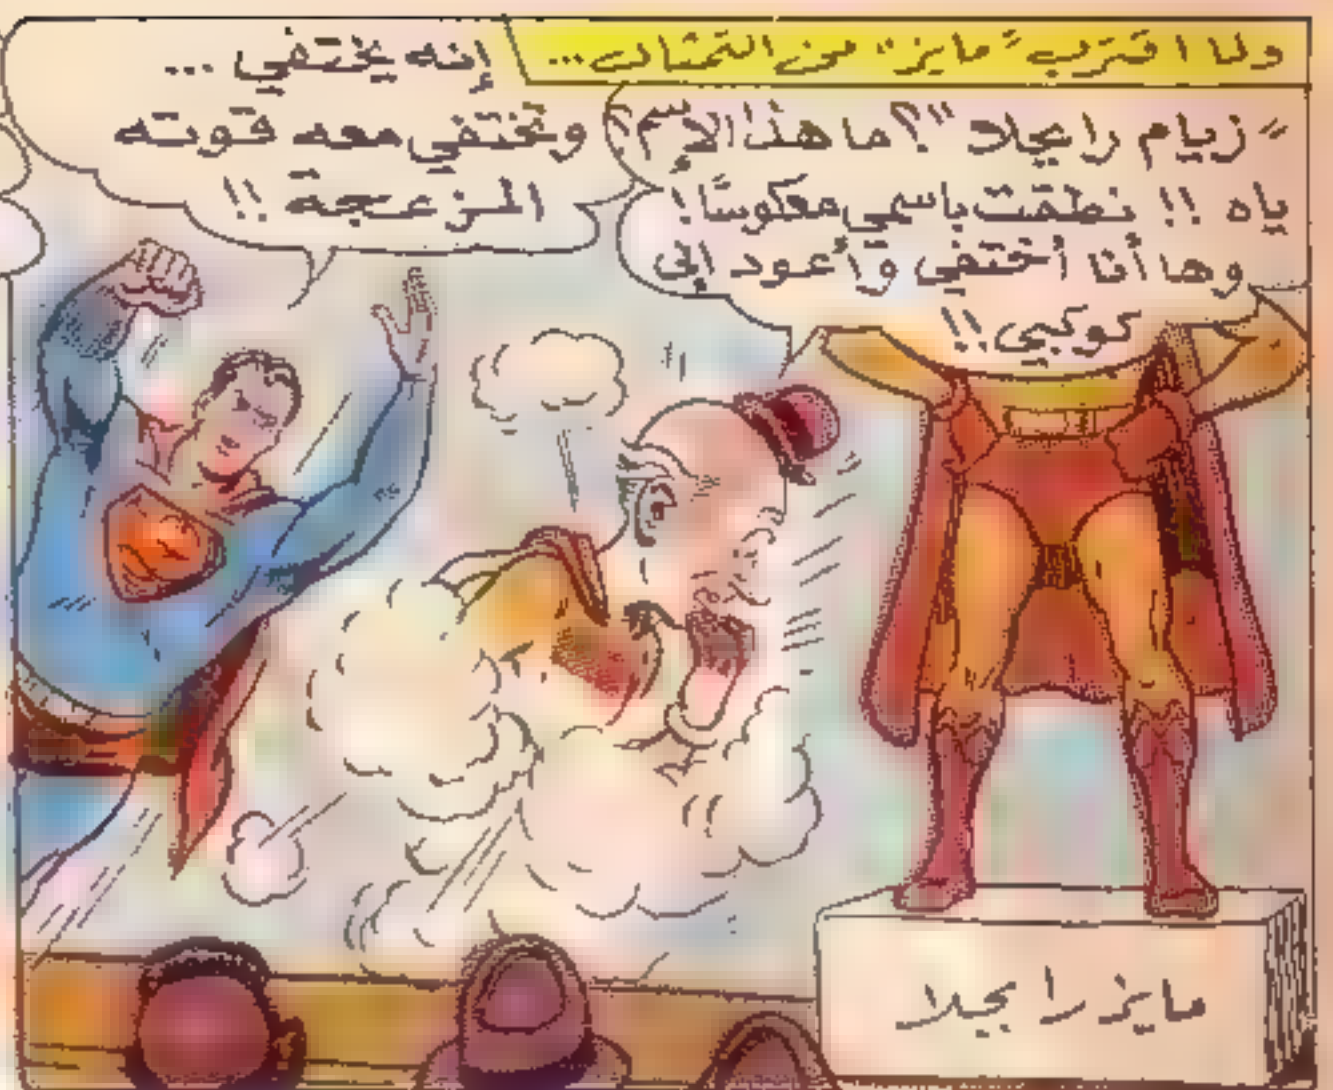 ولما اقترب "مايز" من التمثال...
"زيام رايجلا"؟ ما هذا الإسم؟
ياه !! نطقت باسمي معكوسًا!
وها أنا أختفي وأعود إلى
كوكبي !!
إنه يختفي ...
وتختفي معه قوته
المزعجة !!
مايز رايجلا